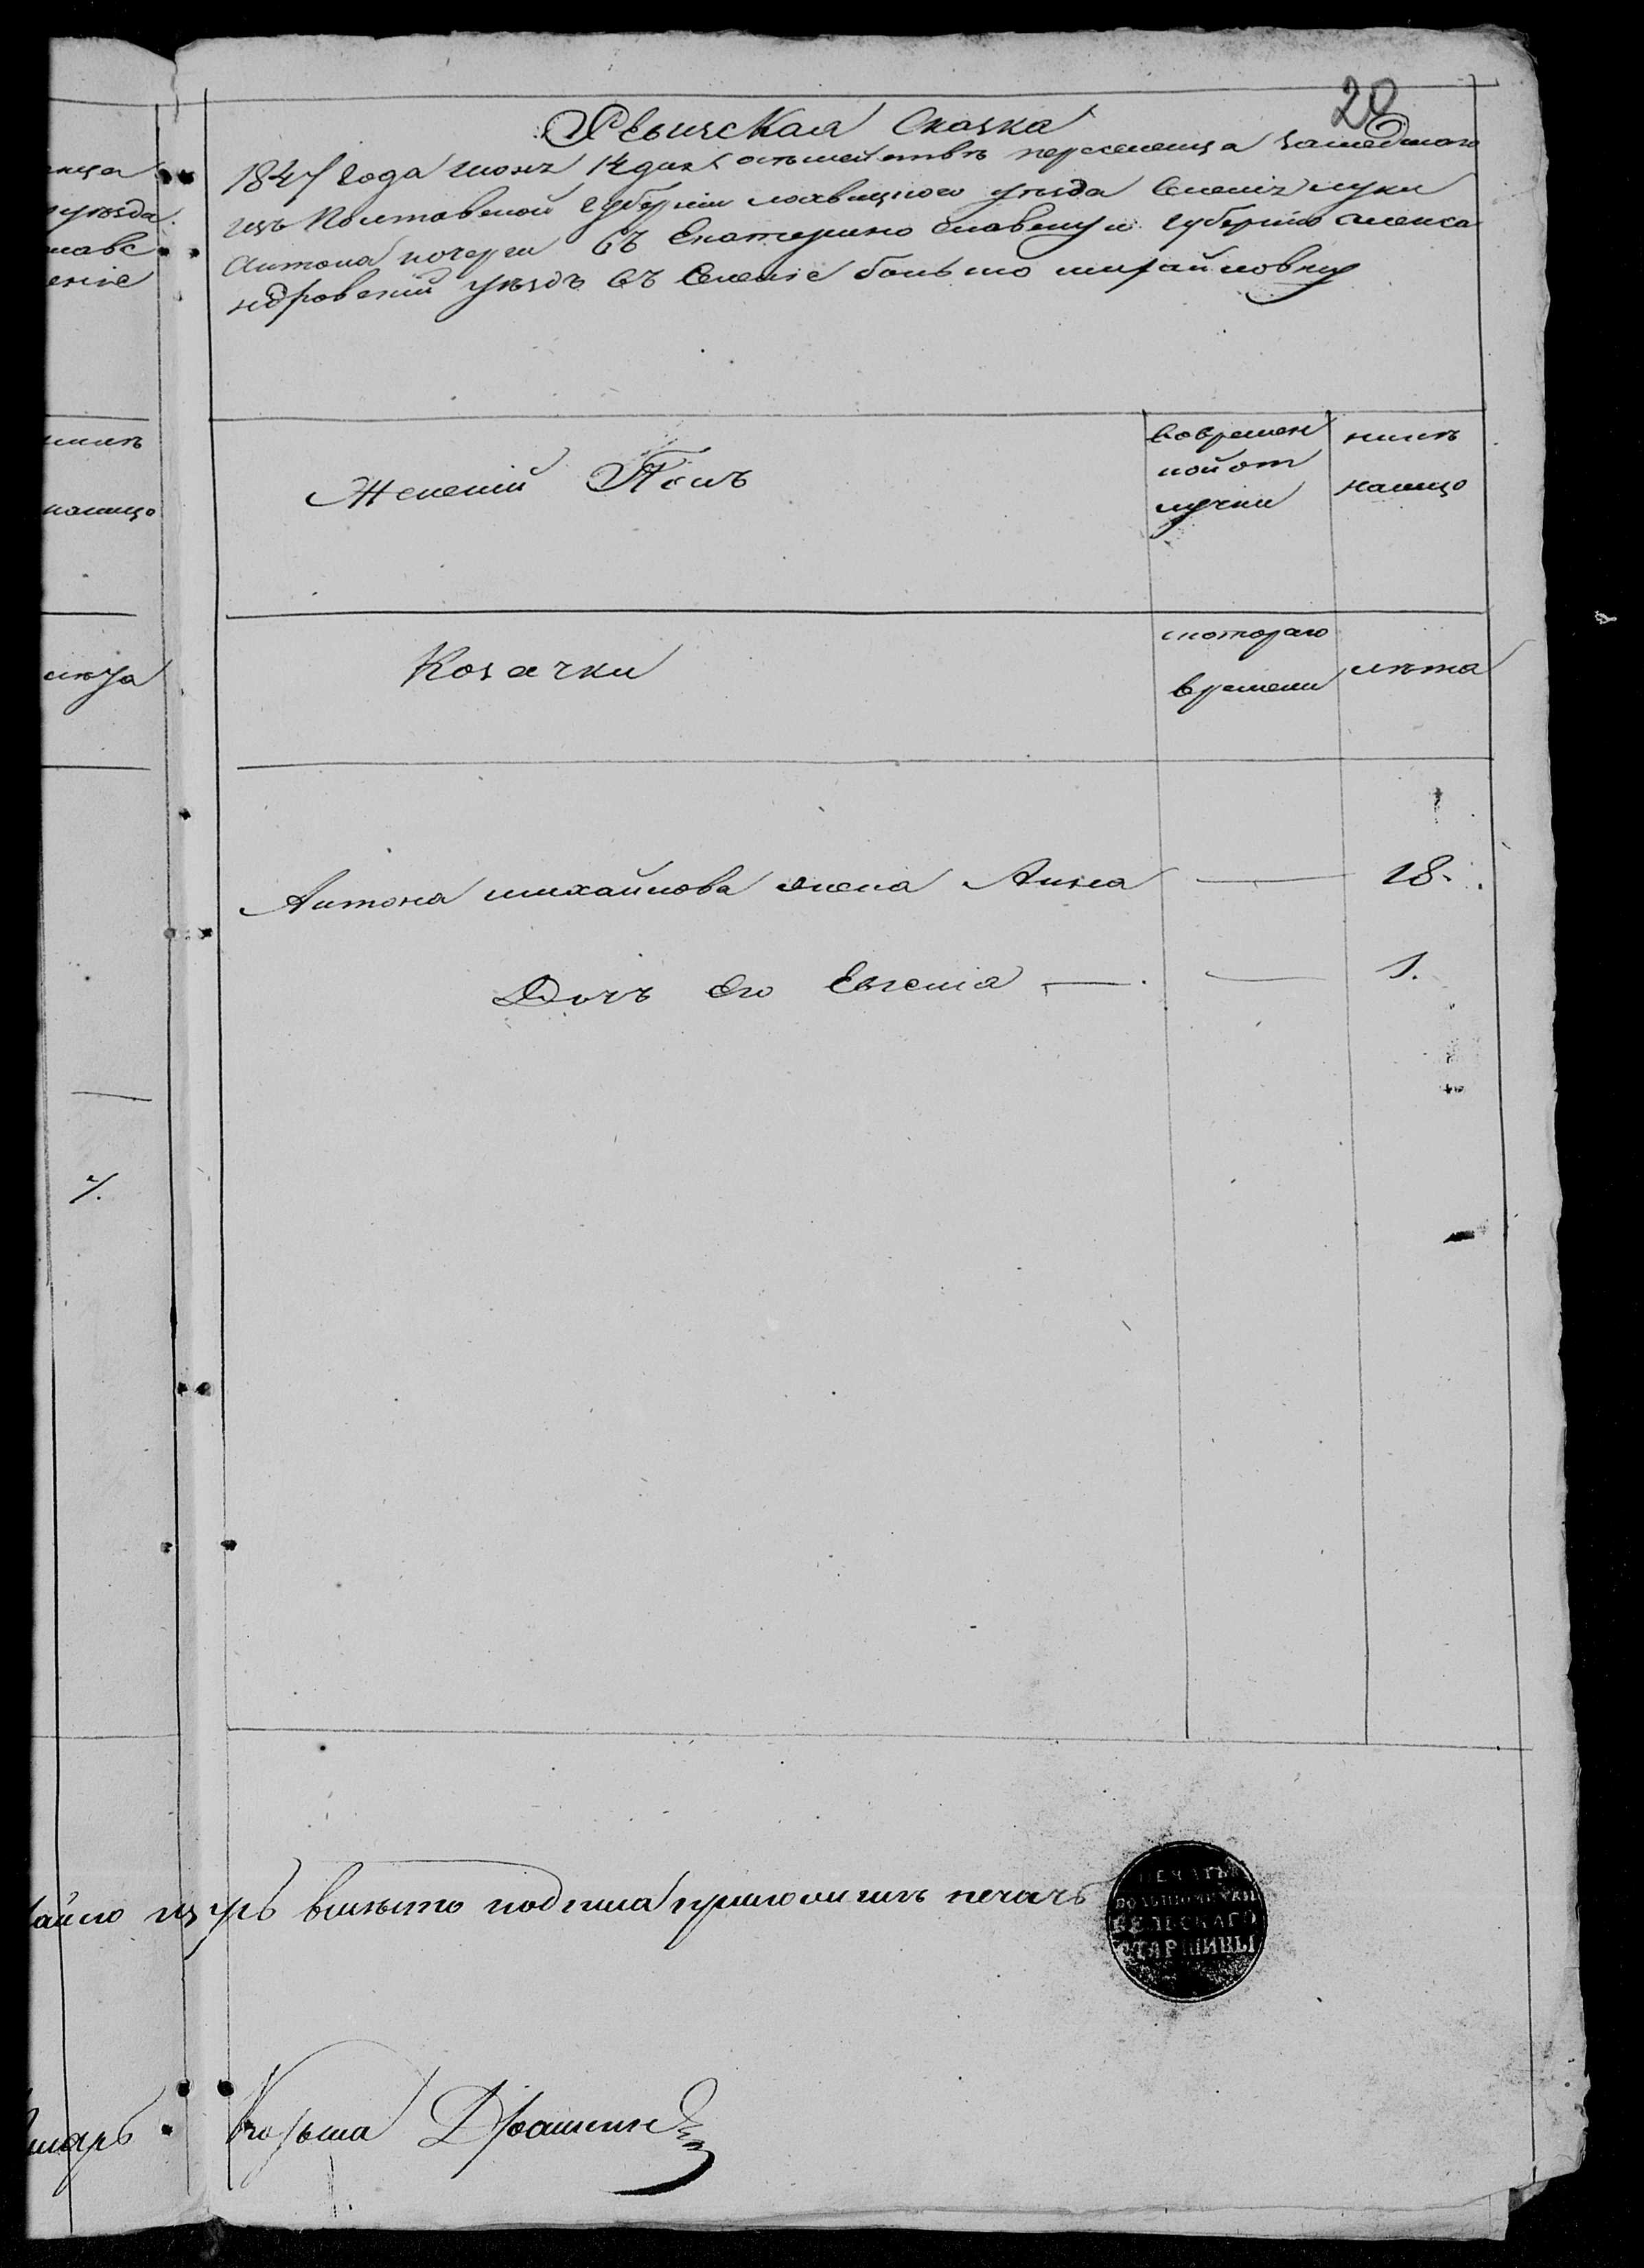 20
Ревизская Сказка
1847 года июня 14 дня о семействе переселенца зашедшаго
изъ Полтавской губернии лохвицкого уезда Селения луки
Антона кочерги въ Екатерино славскую губернию алекса
ндровский уездъ въ Селение большо михайловку
Женский Полъ
вовремен
ной от
лучки
ныне
налицо
Козачки
скотораго
времени
лета
Антона михайлова жена Анна — 18.
Дочъ его Евгения — — 1.
вместо подписа приложилъ печать
ПЕЧАТЬ
БОЛЬШОМИХАЙ
СТАРШИНЫ
нца
уезда
славс
ение
ныне
налицо
лета